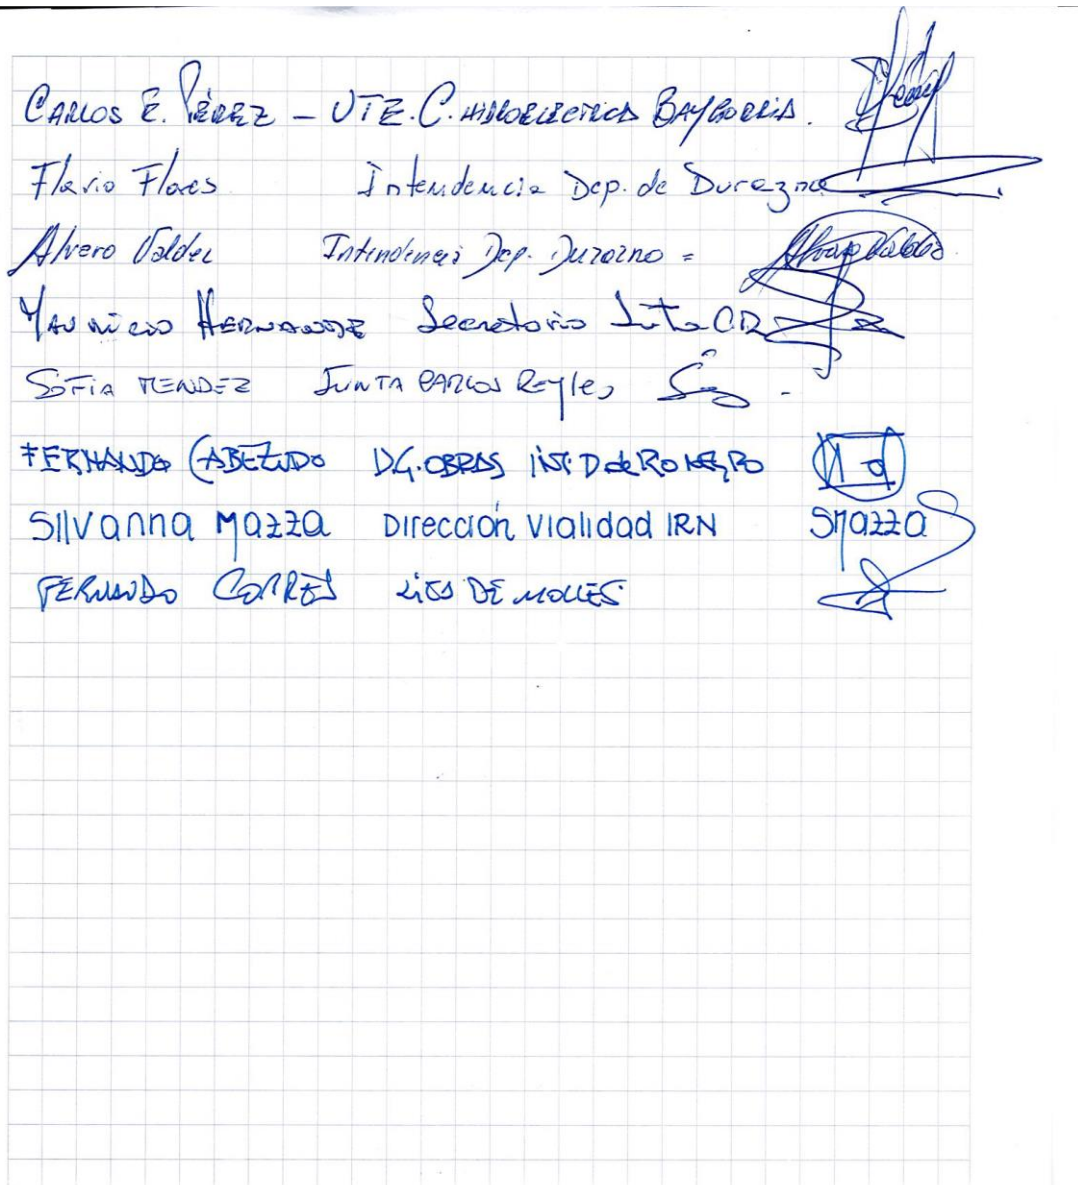 CARLOS E. PÉREZ – UTE. C. HIDROELECTRICA BAYGORRIA.
Flavio Flores Intendencia Dep. de Durazno
Alvaro Valdez Intendencia Dep. Durazno = Alvaro Valdez
MAURICIO HERNANDEZ Secretario Junta CR
SOFIA MENDEZ JUNTA CARLOS Reyles
FERNANDO CABEZUDO D.G. OBRAS INT. D de RIO NEGRO
SIlVanna Mazza Dirección Vialidad IRN SMazza
FERNANDO DE MOLLES